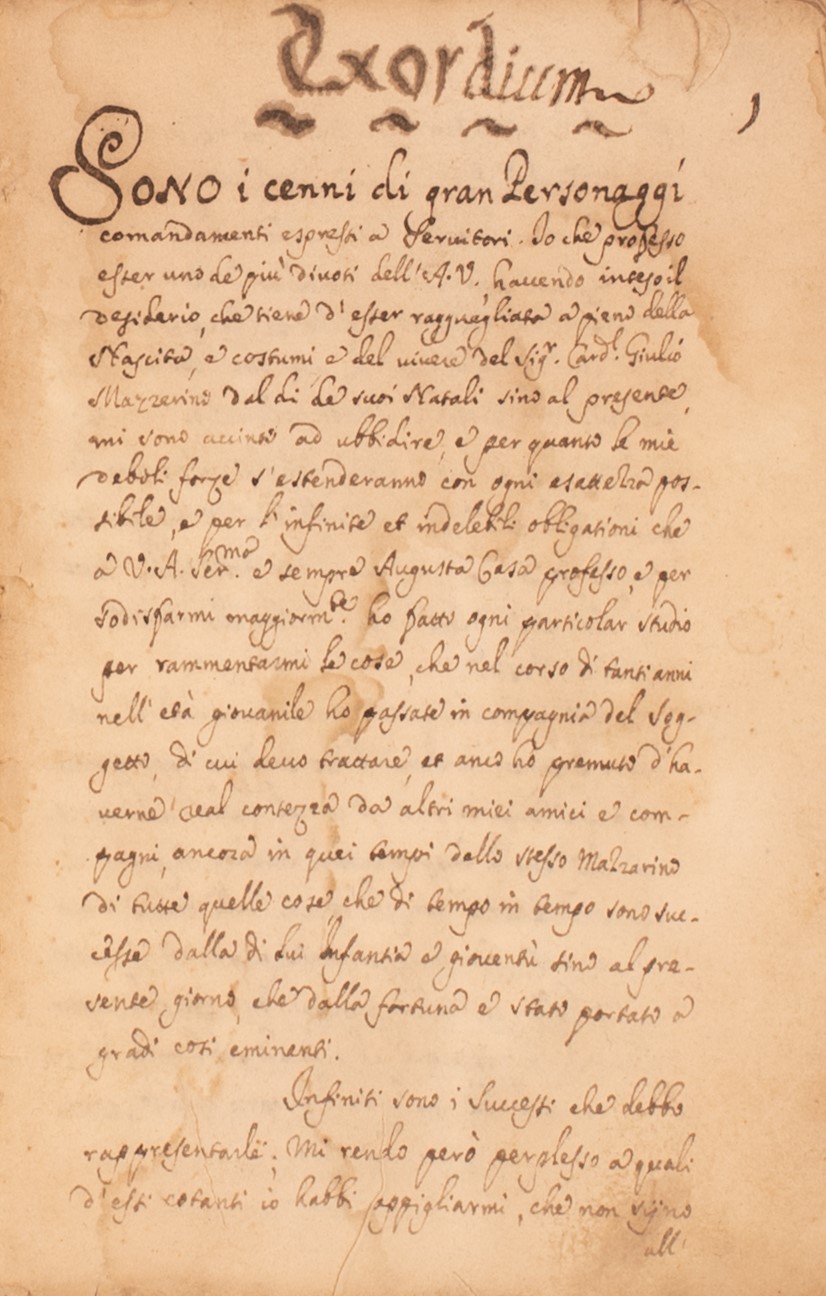 Exordium
Sono i cenni di gran Personaggi
comandamenti espressi a Seruitori. Io che professo
esser uno de più diuoti dell'A.V. hauendo inteso il
desiderio, che tiene d'esser ragguagliata a pieno della
Nascita, e costumi e del uiuere del Sig.r Card.l Giulio
Mazzerino dal di de suoi Natali sino al presente,
mi sono accinto ad ubbidire, e per quanto le mie
deboli forze s'estenderanno con ogni esattezza pos-
sibile, e per l'infinite et indelebili obligationi che
a V.A. Ser.ma e sempre Augusta Casa professo, e per
sodisfarmi maggiorm.te ho fatto ogni particolar studio
per rammentarmi le cose, che nel corso di tanti anni
nell'età giouanile ho passate in compagnia del Sog-
getto, di cui deuo trattare, et anco ho premuto d'ha-
uerne real contezza da altri miei amici e com-
pagni, ancora in quei tempi dello stesso Mazzarino
di tutte quelle cose, che di tempo in tempo sono suc-
cesse dalla di lui Infantia e giouentù sino al pre-
sente giorno, che dalla fortuna è stato portato a
gradi cosi eminenti.
Infiniti sono i Successi che debbo
rappresentarle; Mi rendo però perplesso a quali
d'essi cotanti io habbi appigliarmi, che non siano
all'